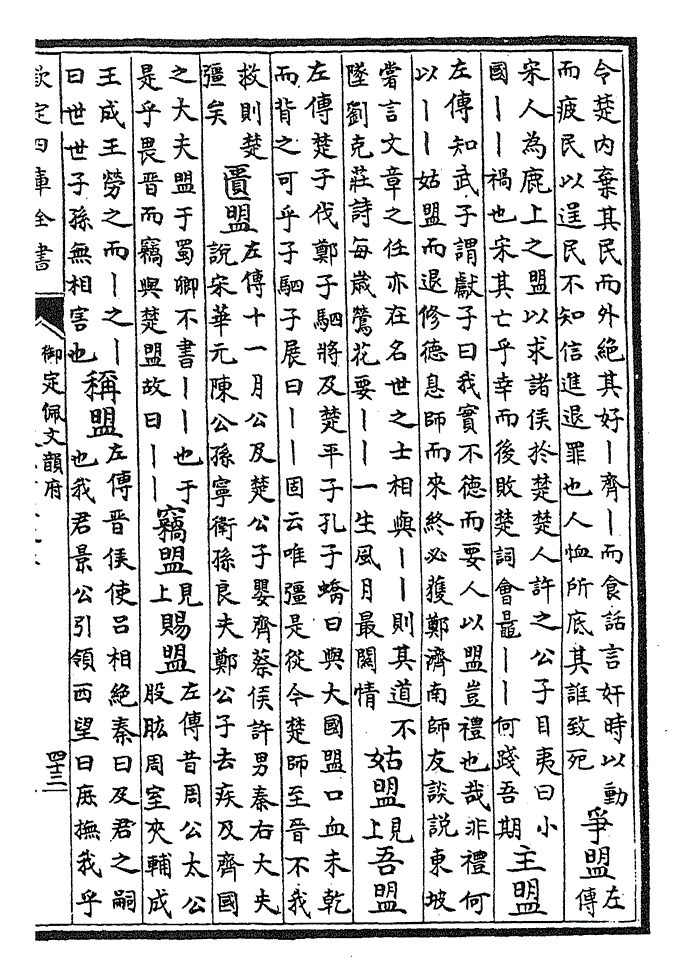 令楚内棄其民而外絶其好丨齊丨而食話言奸時以動
而疲民以逞民不知信進退罪也人恤所底其誰致死
爭盟
左
傳
宋人為鹿上之盟以求諸侯於楚楚人許之公子目夷曰小
國丨丨禍也宋其亡乎幸而後敗楚詞會鼂丨丨何踐吾期
主盟
左傳知武子謂獻子曰我實不德而要人以盟豈禮也哉非禮何
以丨丨姑盟而退修德息師而來終必獲鄭濟南師友談說東坡
嘗言文章之任亦在名世之士相與丨丨則其道不
墜劉克莊詩每歳鶯花要丨丨一生風月最關情
姑盟
見
上
吾盟
左傳楚子伐鄭子駟將及楚平子孔子蟜曰與大國盟口血未乾
而背之可乎子駟子展曰丨丨固云唯彊是從今楚師至晉不我
救則楚
彊矣
匱盟
左傳十一月公及楚公子嬰齊蔡侯許男秦右大夫
說宋華元陳公孫寧衛孫良夫鄭公子去疾及齊國
之大夫盟于蜀卿不書丨丨也于
是乎畏晉而竊與楚盟故曰丨丨
竊盟
見
上
賜盟
左傳昔周公太公
股肱周室夾輔成
王成王勞之而丨之丨
曰世世子孫無相害也
稱盟
左傳晉侯使吕相絶秦曰及君之嗣
也我君景公引領西望曰庶撫我乎
欽定四庫全書
御定佩文韻府
四十三